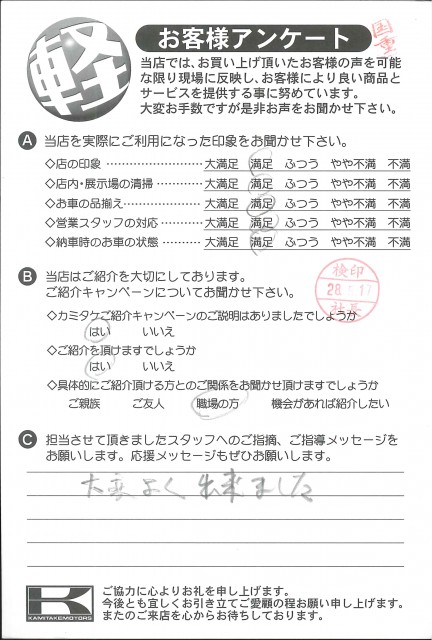 軽
お客様アンケート
当店では、お買い上げ頂いたお客様の声を可能
な限り現場に反映し、お客様により良い商品と
サービスを提供する事に努めています。
大変お手数ですが是非お声をお聞かせ下さい。
A 当店を実際にご利用になった印象をお聞かせ下さい。
◇店の印象 ………………… 大満足 満足 ふつう やや不満 不満
◇店内・展示場の清掃 ………… 大満足 満足 ふつう やや不満 不満
◇お車の品揃え ……………… 大満足 満足 ふつう やや不満 不満
◇営業スタッフの対応 ………… 大満足 満足 ふつう やや不満 不満
◇納車時のお車の状態 ………… 大満足 満足 ふつう やや不満 不満
B 当店はご紹介を大切にしております。
ご紹介キャンペーンについてお聞かせ下さい。
検印
社長
◇カミタケご紹介キャンペーンのご説明はありましたでしょうか
はい いいえ
◇ご紹介を頂けますでしょうか
はい いいえ
◇具体的にご紹介頂ける方とのご関係をお聞かせ頂けますでしょうか
ご親族 ご友人 職場の方 機会があれば紹介したい
C 担当させて頂きましたスタッフへのご指摘、ご指導メッセージを
お願いします。応援メッセージもぜひお願いします。
大変よく出来ました
K
KAMITAKEMOTORS
ご協力に心よりお礼を申し上げます。
今後とも宜しくお引き立てご愛顧の程お願い申し上げます。
またのご来店を心からお待ちしております。